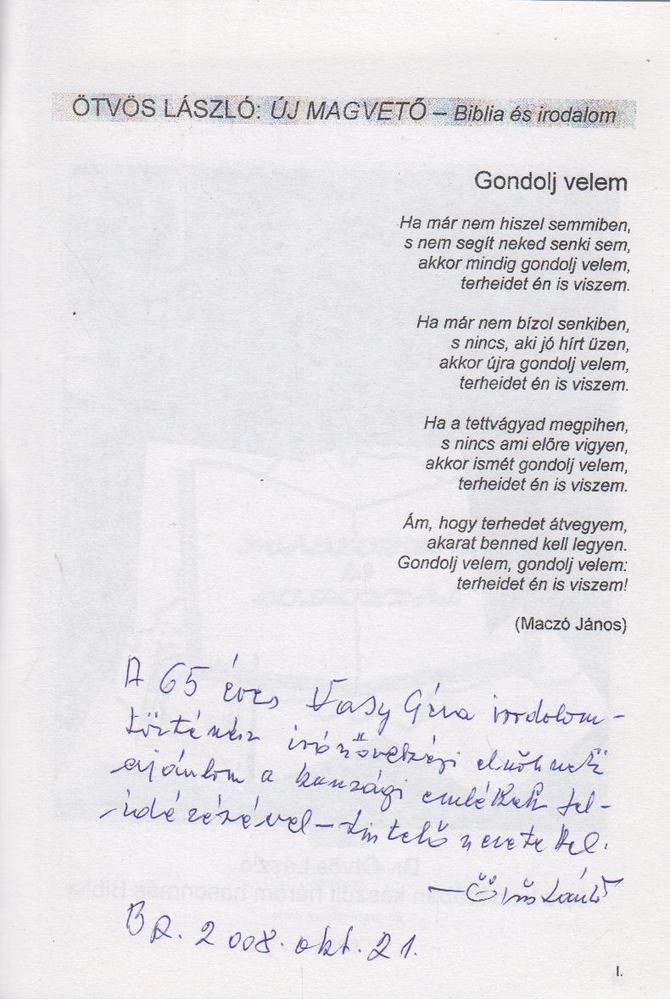 ÖTVÖS LÁSZLÓ: ÚJ MAGVETŐ – Biblia és irodalom
Gondolj velem
Ha már nem hiszel semmiben,
s nem segít neked senki sem,
akkor mindig gondolj velem,
terheidet én is viszem.
Ha már nem bízol senkiben,
s nincs, aki jó hírt üzen,
akkor újra gondolj velem,
terheidet én is viszem.
Ha a tettvágyad megpihen,
s nincs ami előre vigyen,
akkor ismét gondolj velem,
terheidet én is viszem.
Ám, hogy terhedet átvegyem,
akarat benned kell legyen.
Gondolj velem, gondolj velem:
terheidet én is viszem!
(Maczó János)
A 65 éves Vasy Géza irodalom-
történész írószövetségi elnöknek
ajánlom a kunsági emlékek fel-
idézésével – tisztelő szeretettel.
– Ötvös László
Bp. 2008. okt. 21.
I.